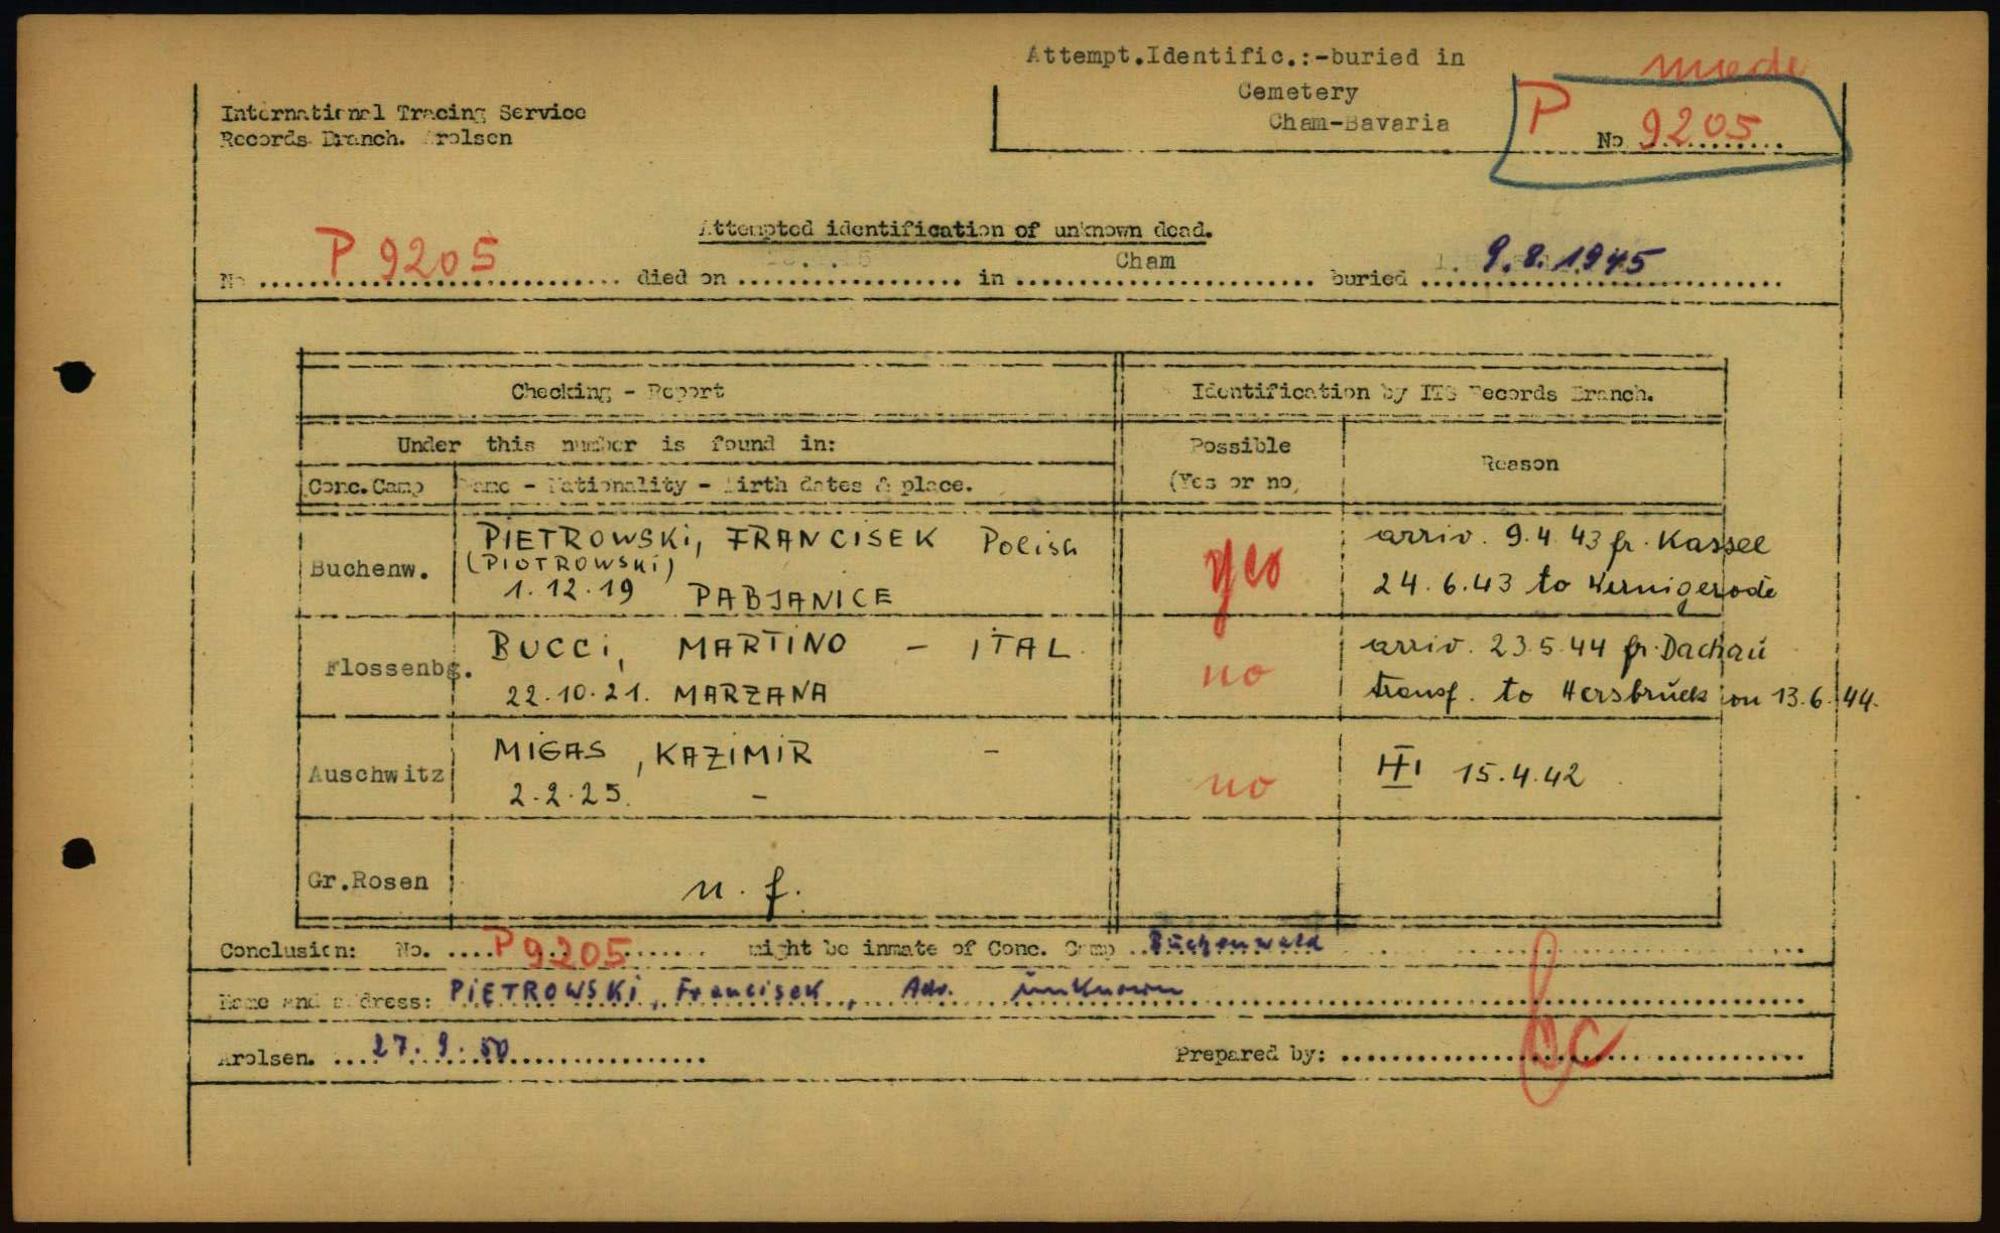 Attempt.Identific.:-buried in
Cemetery
Cham-Bavaria
International Tracing Service
Records Branch. Arolsen
P No 9205
Attempted identification of unknown dead.
No P 9205 died on in Cham buried 9.8.1945
Checking - Report Identification by ITS Records Branch.
Under this number is found in: Possible (Yes or no) Reason
Conc.Camp Name - Nationality - Birth dates & place.
Buchenw. PIETROWSKI, FRANCISEK Polish yes arriv. 9.4.43 fr. Kassel
(PIOTROWSKI)
1.12.19 PABJANICE 24.6.43 to Wernigerode
Flossenbg. BUCCI, MARTINO - ITAL. no arriv. 23.5.44 fr. Dachau
22.10.21. MARZANA transf. to Hersbruck on 13.6.44.
Auschwitz MIGAS, KAZIMIR - no 15.4.42
2.2.25. -
Gr.Rosen n.f.
Conclusion: No. P 9205 might be inmate of Conc. Camp Buchenwald
Name and address: PIETROWSKI, Francisek, Adr. unknown
Arolsen. 27.9.50 Prepared by: